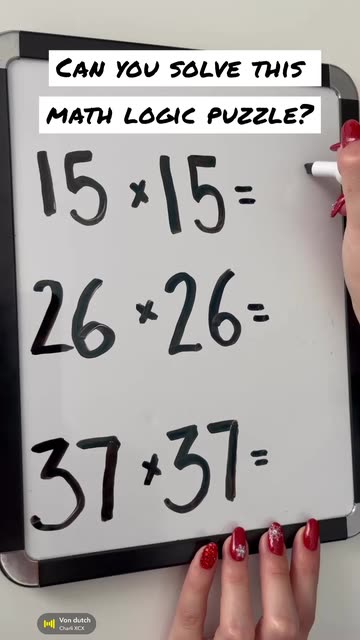 CAN YOU SOLVE THIS
MATH LOGIC PUZZLE?
15 × 15 =
26 × 26 =
37 × 37 =
Von dutch
Charli XCX